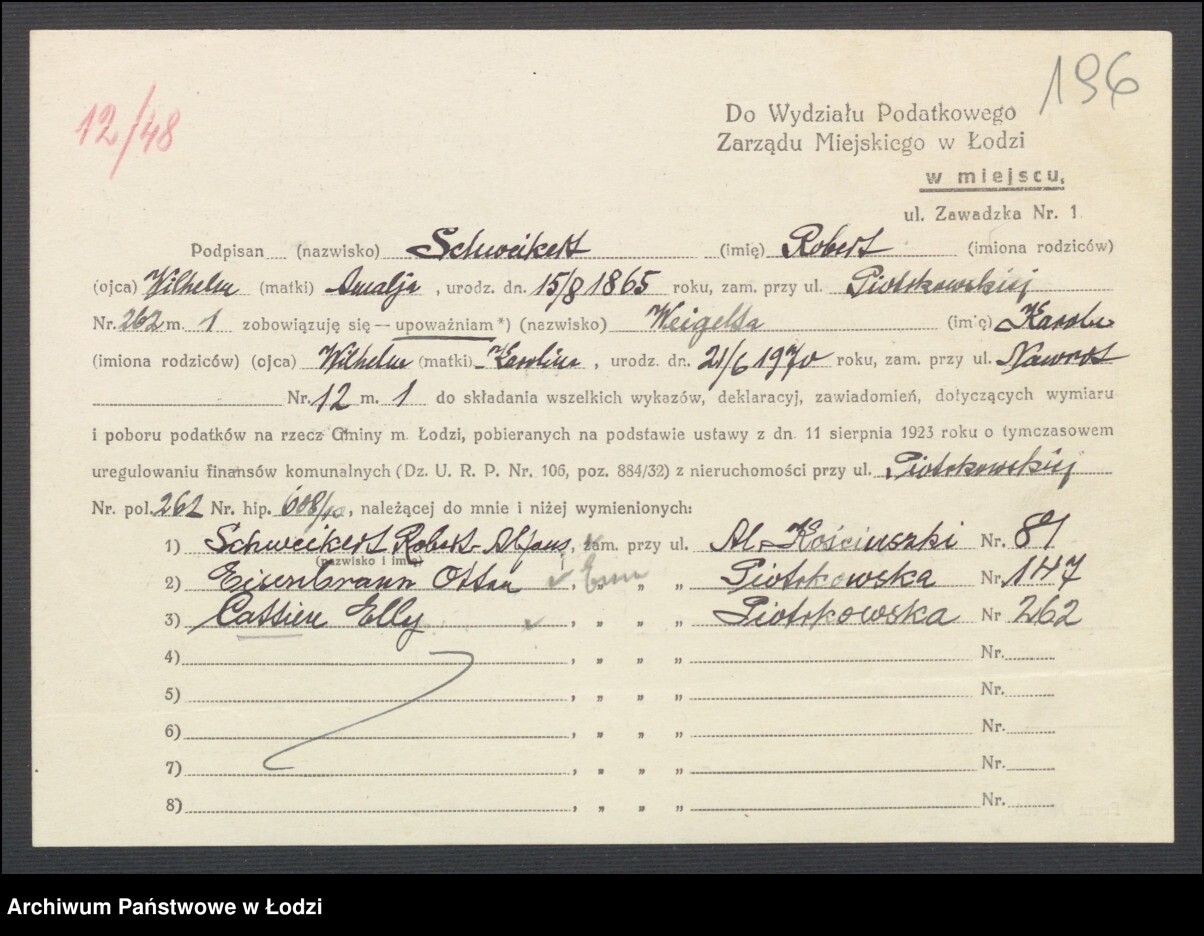 12/48
196
Do Wydziału Podatkowego
Zarządu Miejskiego w Łodzi
w miejscu,
ul. Zawadzka Nr. 1
Podpisan (nazwisko) Schweikert (imię) Robert (imiona rodziców)
(ojca) Wilhelm (matki) Amalja, urodz. dn. 15/8 1865 roku, zam. przy ul. Piotrkowskiej
Nr. 262 m. 1 zobowiązuję się — upoważniam *) (nazwisko) Weigelta (imię) Karola
(imiona rodziców) (ojca) Wilhelm (matki) Karolina, urodz. dn. 21/6 1970 roku, zam. przy ul. Nawrot
Nr. 12 m. 1 do składania wszelkich wykazów, deklaracyj, zawiadomień, dotyczących wymiaru
i poboru podatków na rzecz Gminy m. Łodzi, pobieranych na podstawie ustawy z dn. 11 sierpnia 1923 roku o tymczasowem
uregulowaniu finansów komunalnych (Dz. U. R. P. Nr. 106, poz. 884/32) z nieruchomości przy ul. Piotrkowskiej
Nr. pol. 262 Nr. hip. 608/, należącej do mnie i niżej wymienionych:
1) Schweikert Robert-Alfons, zam. przy ul. Al. Kościuszki Nr. 81
(nazwisko i imię)
2) Eisenbraun Otton, „ „ „ Piotrkowska Nr. 147
3) Cassien Elly, „ „ „ Piotrkowska Nr 262
4) , „ „ „ Nr.
5) , „ „ „ Nr.
6) , „ „ „ Nr.
7) , „ „ „ Nr.
8) , „ „ „ Nr.
Archiwum Państwowe w Łodzi